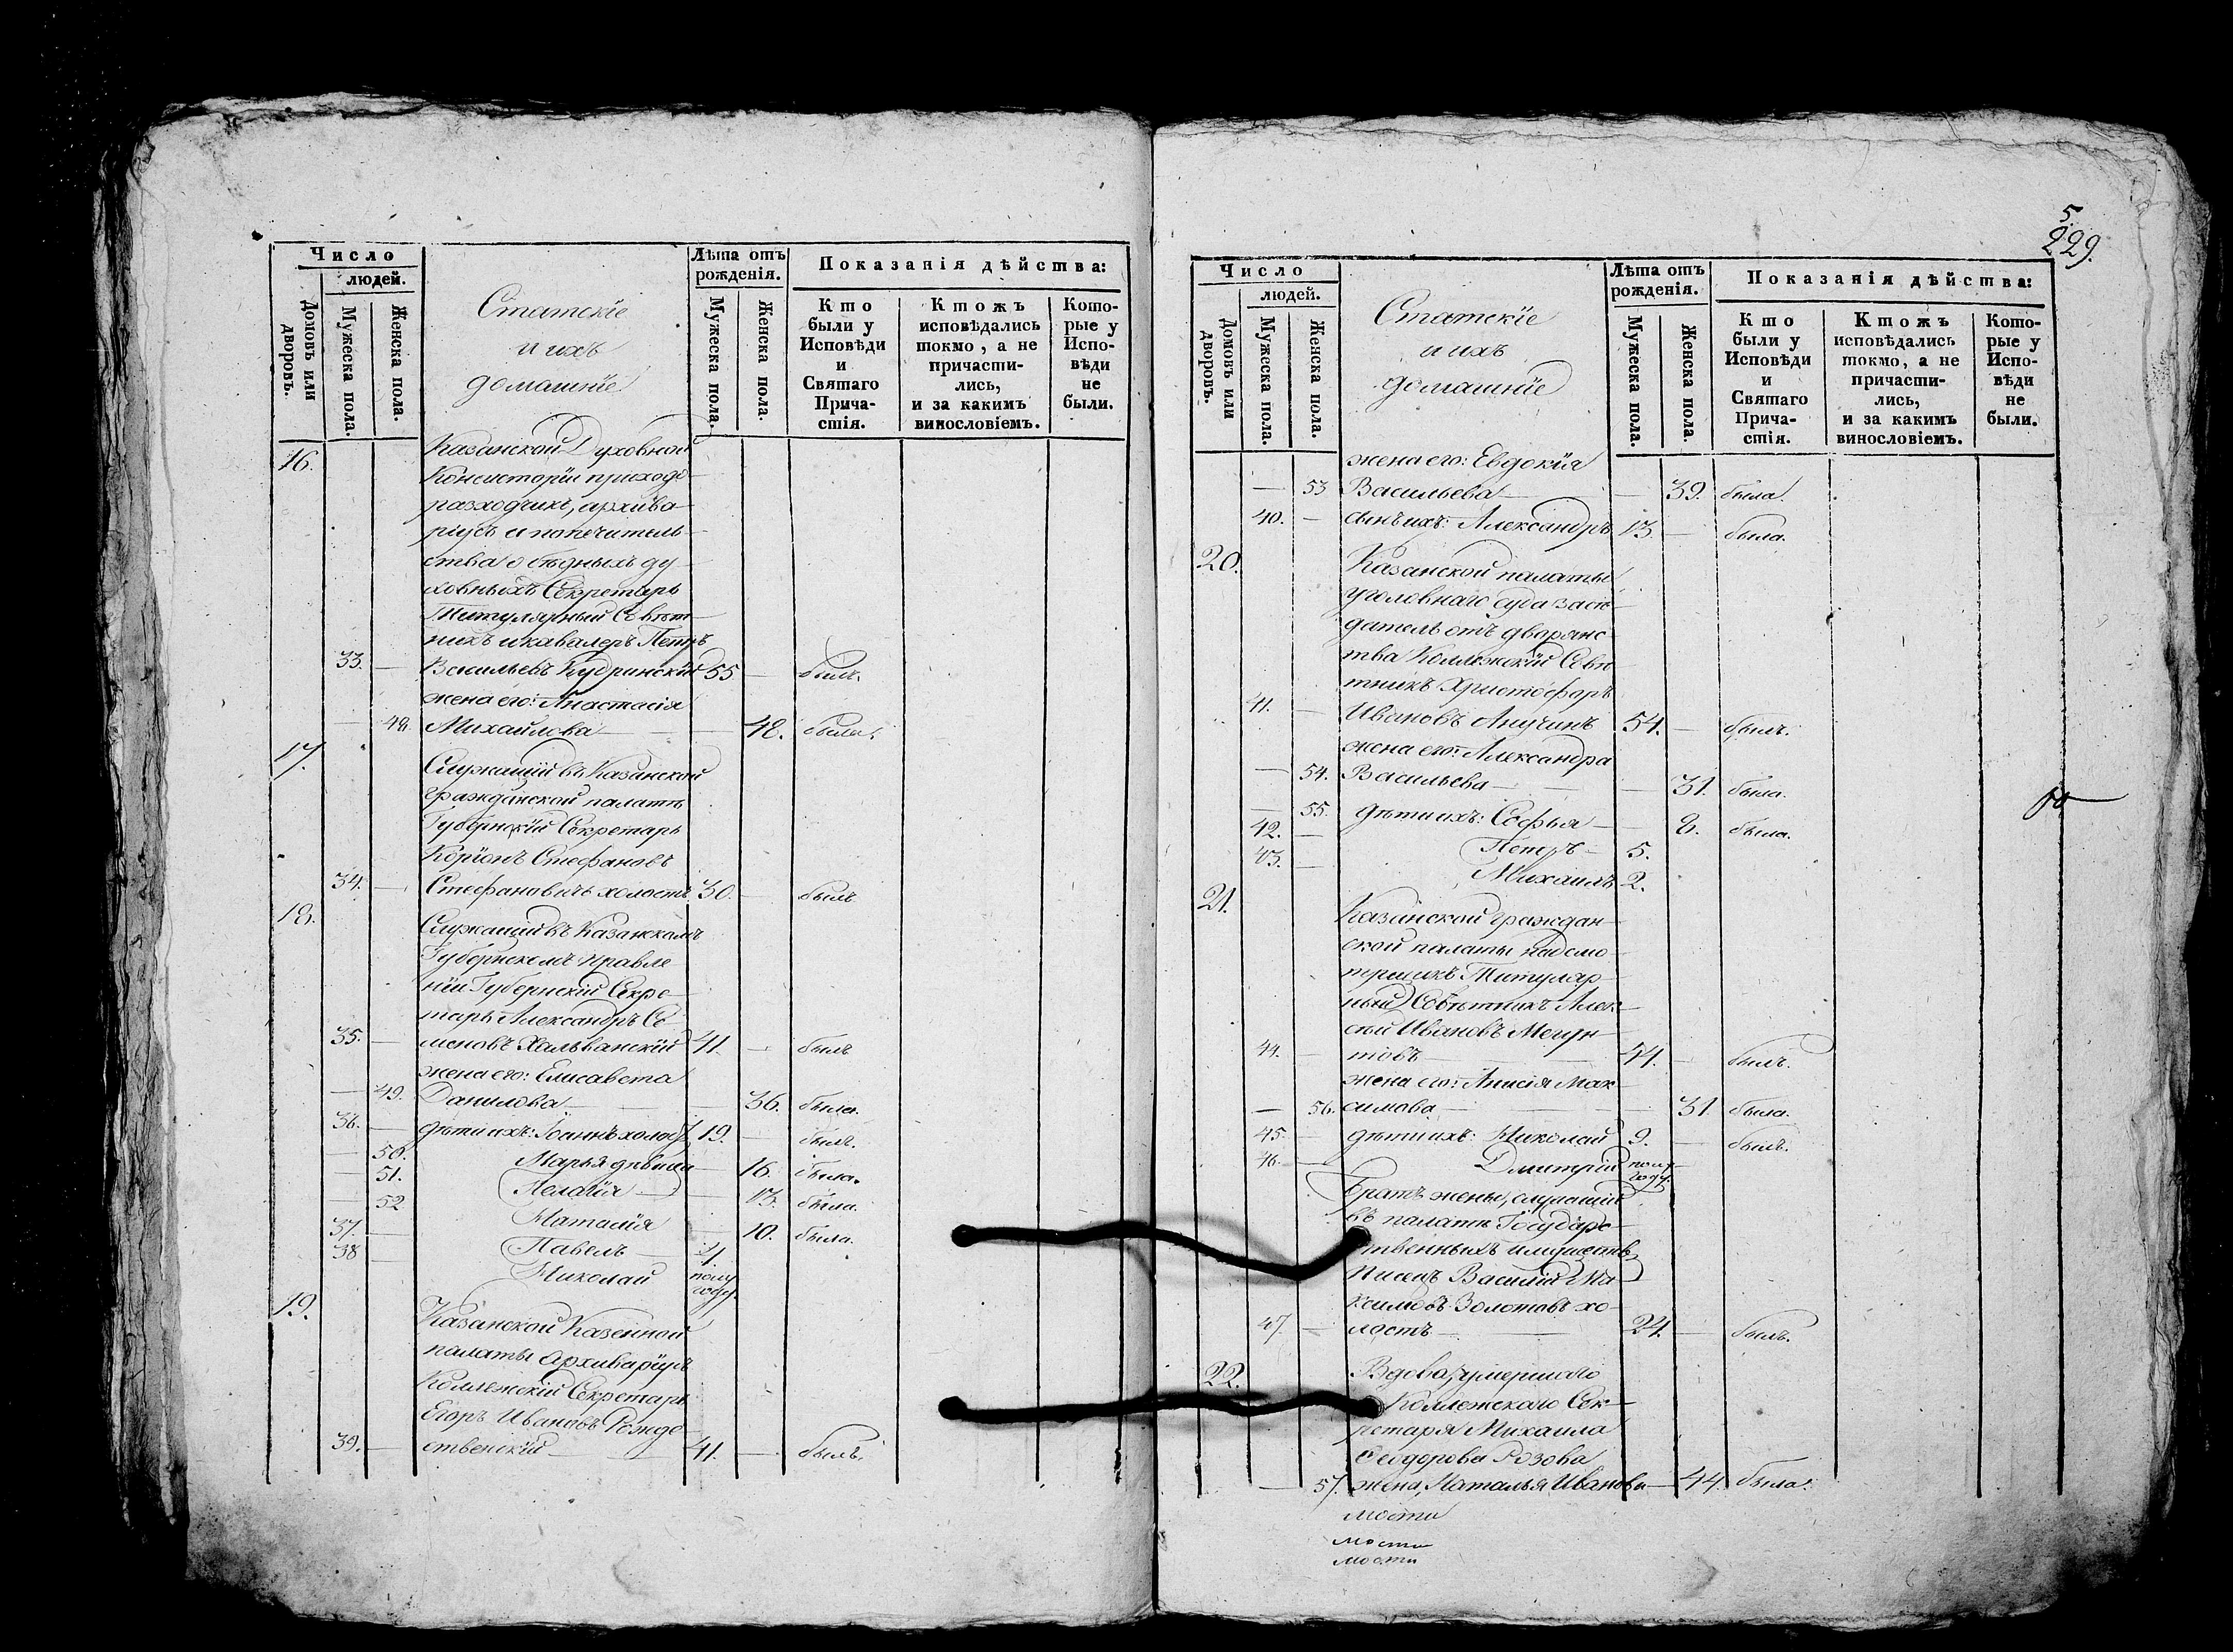 Число
людей.
Домовъ или дворовъ.
Мужеска пола.
Женска пола.
Статскіе
и ихъ
домашніе
Лѣта отъ
рожденія.
Мужеска пола.
Женска пола.
Показанія дѣйства:
Кто
были у
Исповѣди
и
Святаго
Прича-
стія.
Ктожъ
исповѣдались
токмо, а не
причасти-
лись,
и за какимъ
винословіемъ.
Кото-
рые у
Испо-
вѣди
не
были.
16. Казанской Духовной
Консисторіи приходо
разходчикъ, архива
ріусъ и попечитель
ства о бѣдныхъ ду
ховныхъ Секретарь
Титулярный Совѣт
никъ и кавалеръ Петръ
33. — Васильевъ Кудринскій 55 — былъ.
жена его: Анастасія
— 48. Михайлова — — 48. была.
17. Служащій въ Казанской
гражданской палатѣ
Губернскій Секретарь
Стефановъ
34. — Стефановичъ холостъ 30. — былъ
18. Служащій въ Казанскомъ
Губернскомъ правле
ніи Губернскій Секре
тарь Александръ Се
35. — меновъ Хальванскій 41. — былъ
жена его: Елисавета
— 49. Данилова — — 36. была.
36. — дѣти ихъ: Іоаннъ холос 19. — былъ.
— 50. Марья дѣвица — 16. была.
— 51. Пелагія — — 13. была.
— 52 Наталія — 10. была.
37. — Павелъ —
38 — Николай полу
году
19. Казанской Казенной
палаты Архиваріусъ
Коллежскій Секретарь
Егоръ Ивановъ Рожде
39. — ственскій — 41. — былъ.
5.
229.
Число
людей.
Домовъ или дворовъ.
Мужеска пола.
Женска пола.
Статскіе
и ихъ
домашніе
Лѣта отъ
рожденія.
Мужеска пола.
Женска пола.
Показанія дѣйства:
Кто
были у
Исповѣди
и
Святаго
Прича-
стія.
Ктожъ
исповѣдались
токмо, а не
причасти-
лись,
и за какимъ
винословіемъ.
Кото-
рые у
Испо-
вѣди
не
были.
жена его: Евдокія
— 53 Васильева — — 39. была.
40. — сынъ ихъ: Александръ 13. — была.
20. Казанской палаты
уголовнаго суда засѣ
датель отъ дворянс
тва Коллежскій Совѣ
тникъ Христофоръ
41. — Ивановъ Анучинъ 54. — былъ.
жена его: Александра
— 54. Васильева — — 31. была.
— 55. дѣти ихъ: Софья — — 8. была.
42. — Петръ — 5.
43. — Михаилъ 2.
21. Казанской граждан
ской палаты надсмо
трщикъ Титуляр
ный Совѣтникъ Алек
сѣй Ивановъ
44. — товъ — 44. — былъ.
жена его: Анисія Мак
— 56. симова — — 31. была.
45. — дѣти ихъ: Николай 9. — былъ.
46. — Дмитрій полу
году.
Братъ жены, служащій
въ палатѣ Государс
твенныхъ имуществъ
Писецъ Василій Ма
ксимовъ Золотовъ хо
47. — лостъ — 24. — былъ.
22. Вдова, умершаго
Коллежскаго Сек
ретаря Михаила
Ѳеодорова Розова
— 57. жена, Наталья Иванова — 44. была.
мости
мости
мости